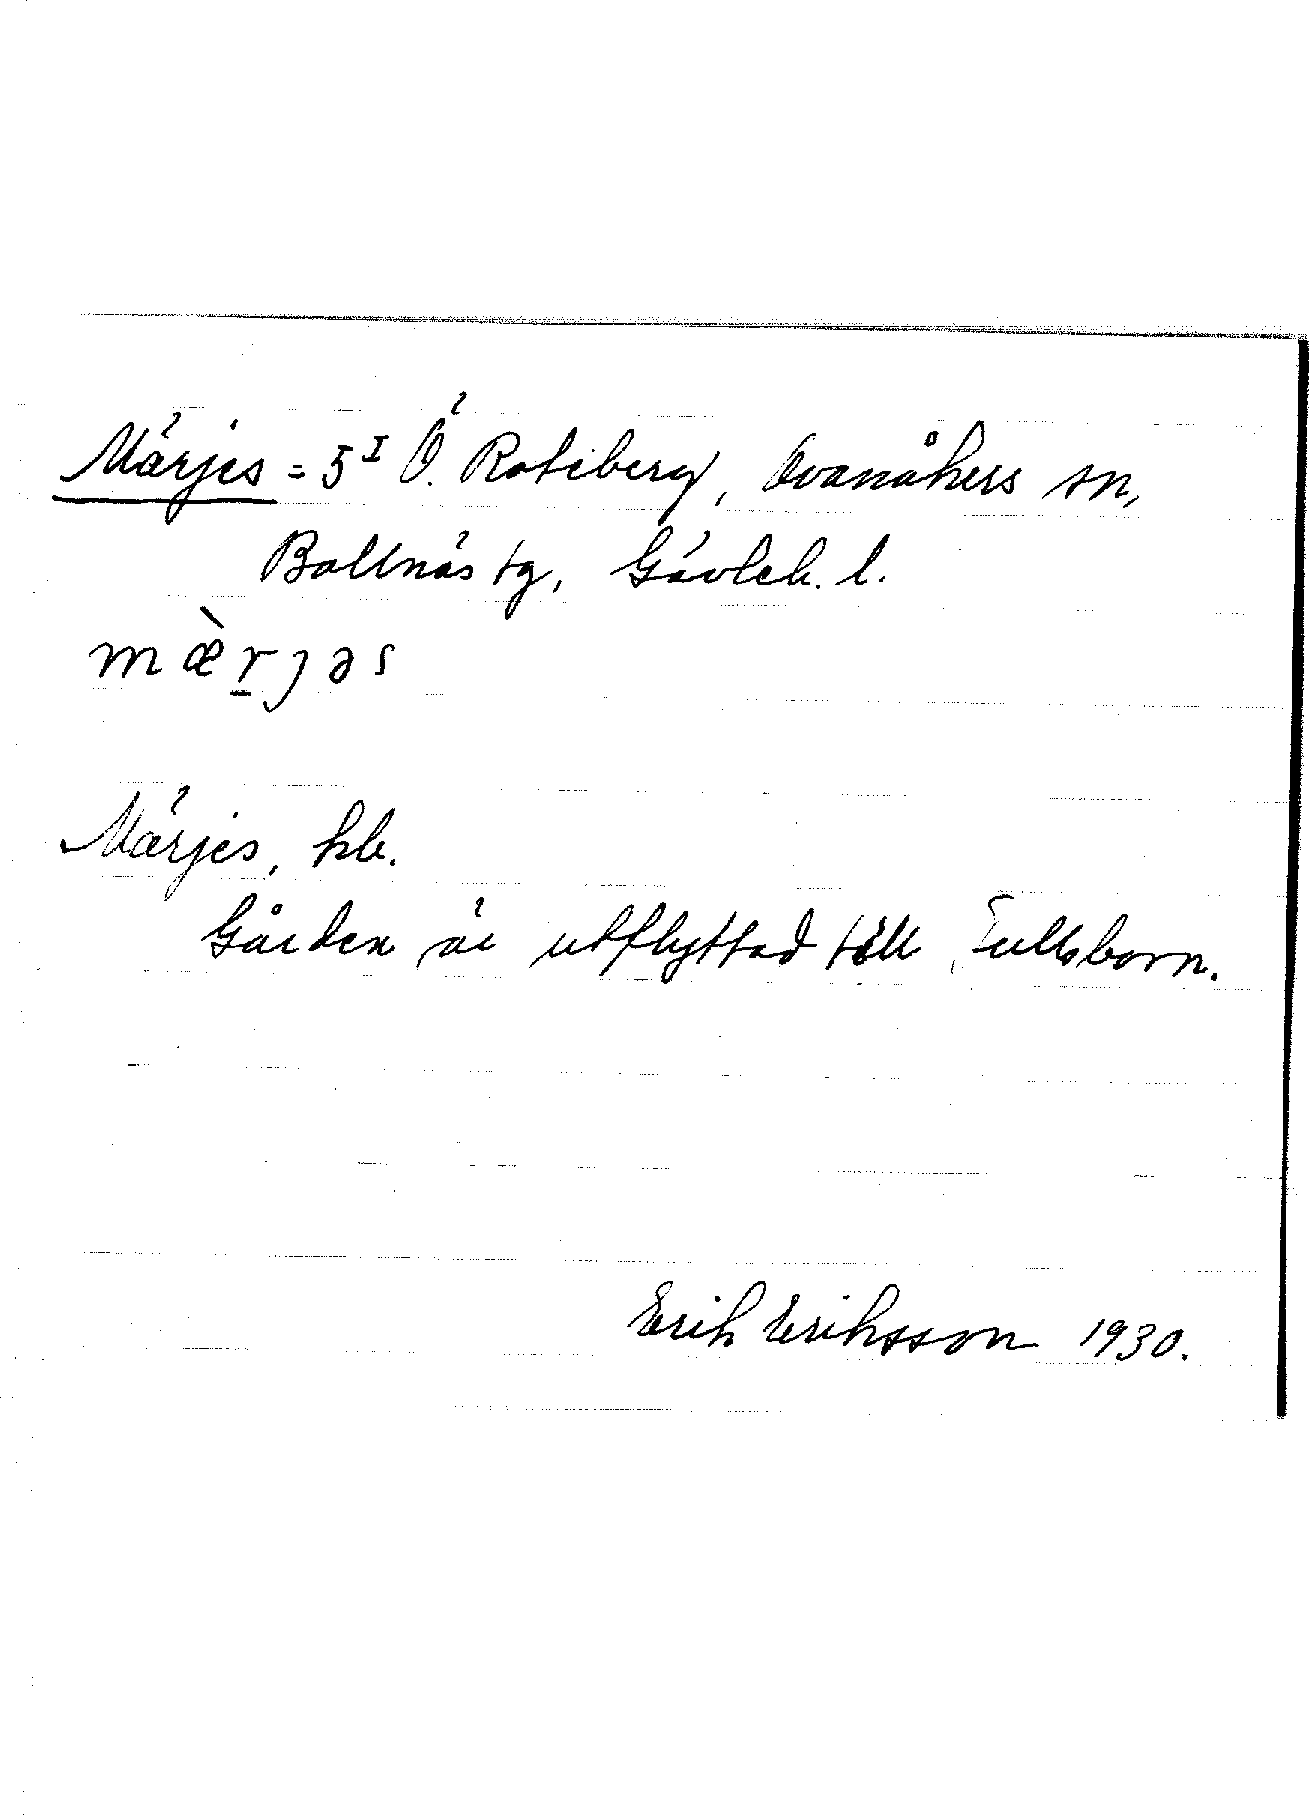 Märjes = 5ᴵ Ö. Roteberg, Ovanåkers sn,
Bollnäs tg, Gävleb. l.
mæ̀r̠jəs
Märjes, hb.
Gården är utflyttad till
Erik Eriksson 1930.